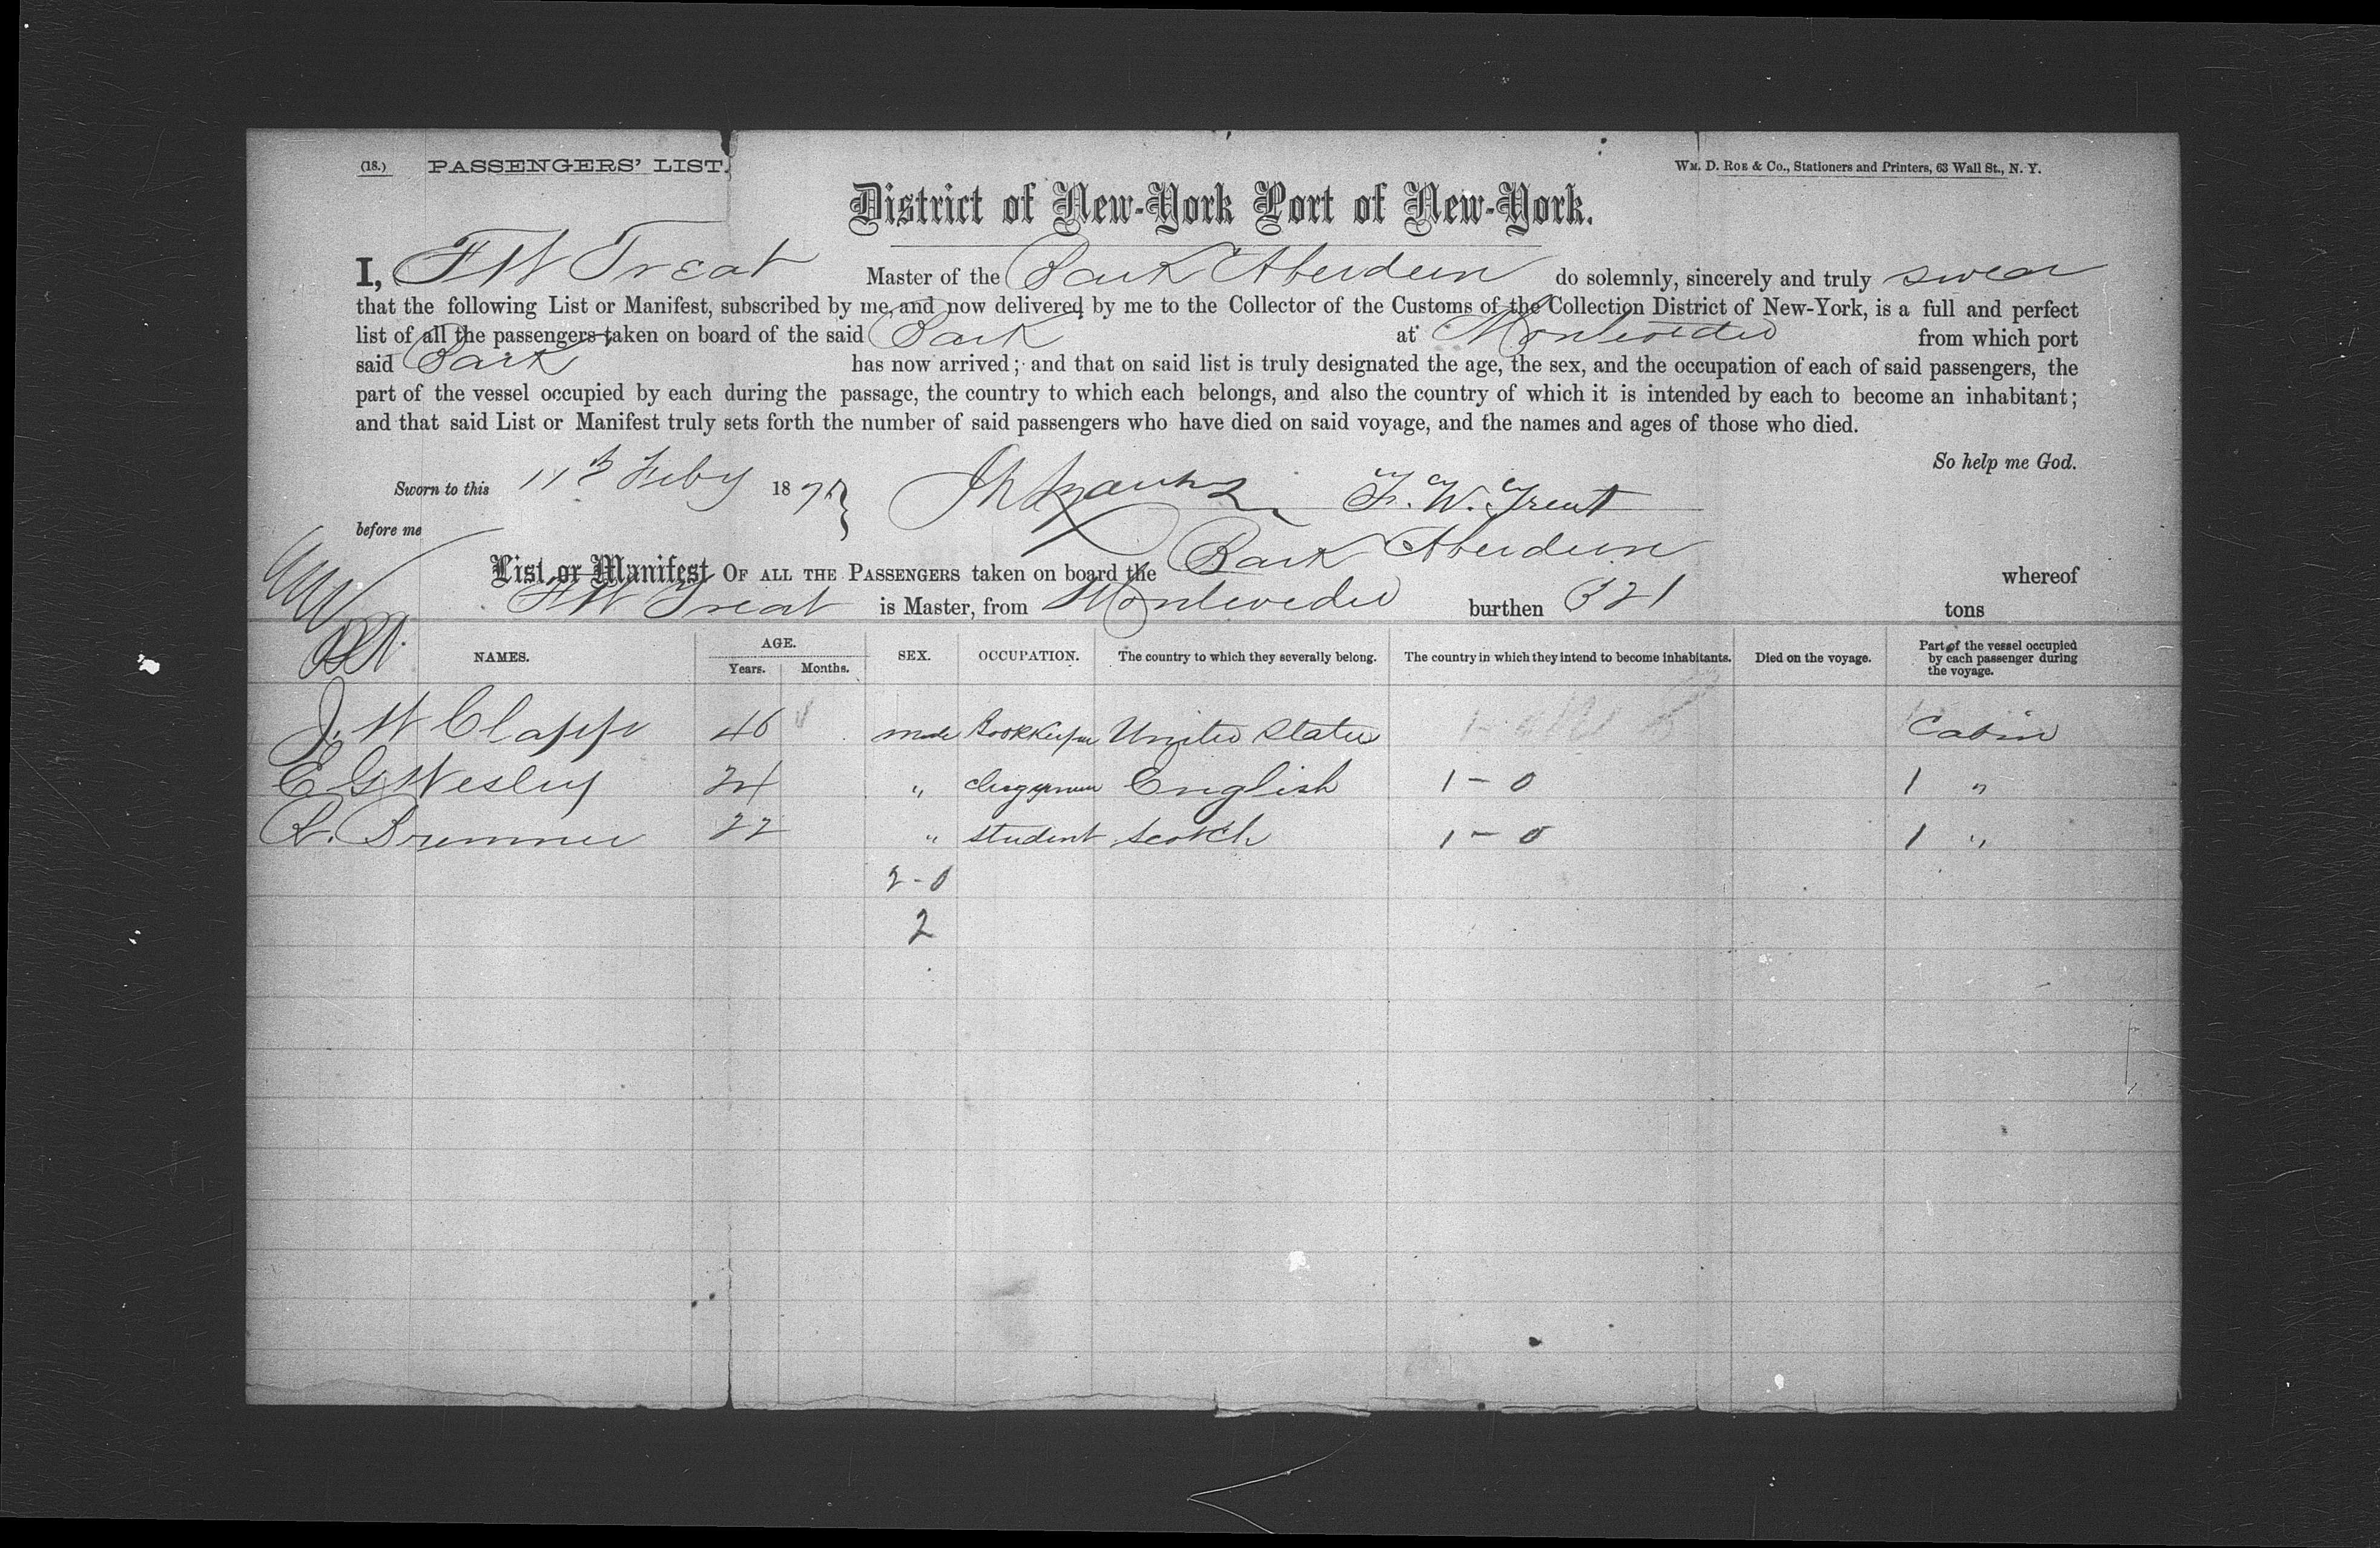 (18.) PASSENGERS' LIST. WM. D. ROE & CO., Stationers and Printers, 63 Wall St., N. Y.
District of New-York Port of New-York.
I, F W Treat Master of the Bark Aberdeen do solemnly, sincerely and truly swear
that the following List or Manifest, subscribed by me, and now delivered by me to the Collector of the Customs of the Collection District of New-York, is a full and perfect
list of all the passengers taken on board of the said Bark at Montevideo from which port
said Bark has now arrived; and that on said list is truly designated the age, the sex, and the occupation of each of said passengers, the
part of the vessel occupied by each during the passage, the country to which each belongs, and also the country of which it is intended by each to become an inhabitant;
and that said List or Manifest truly sets forth the number of said passengers who have died on said voyage, and the names and ages of those who died.
So help me God.
Sworn to this 11th Feby 187 F. W. Treat
before me
List or Manifest OF ALL THE PASSENGERS taken on board the Bark Aberdeen whereof
F W Treat is Master, from Montevideo burthen 621 tons
NAMES. AGE. Years. Months. SEX. OCCUPATION. The country to which they severally belong. The country in which they intend to become inhabitants. Died on the voyage. Part of the vessel occupied by each passenger during the voyage.
J. W Clapp 46 male Bookkeeper United States Cabin
E G Wesley 24 " clergyman English 1 - 0 1 "
R. Bremner 22 " student Scotch 1 - 0 1 "
2 - 0
2